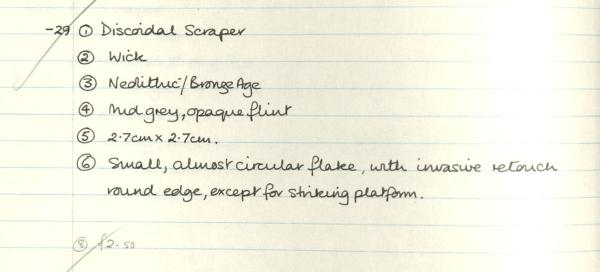 -29 ① Discoidal Scraper
② Wick
③ Neolithic/Bronze Age
④ Mid grey, opaque flint
⑤ 2.7cm x 2.7cm.
⑥ Small, almost circular flake, with invasive retouch
round edge, except for striking platform.
⑧ £2-50